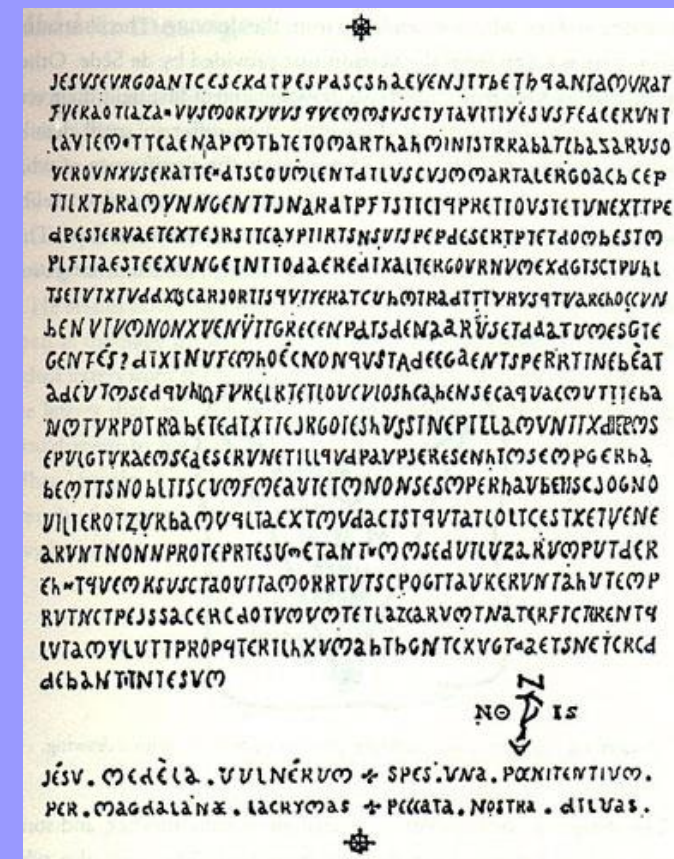 JESVSEVRGOANTCCESEXdTPESPASCShaEVENJTTbETbqANTAMVRAT
FVERAOTIAZA·VVSMORTYVVSqVEMMSVSCTYTAVITIYESVSFEdCERVNT
LAVTEM·TTCAENAPMTbTETOMARThahMINISTRRabaTCbaSARUSO
VEROVNXVSERATTE·dTSCOVMLENTdTLVSCVJMMARTALERGOACbCEP
TTLKTbRAMVNNGENTTJNARdTPFTSTICIqPRETTOVSTETVNEXTTPE
dPESTERVAETEXTEJRSTICAYPIIRTSNSVISPEPdESERTPTETdOMbESTM
PLFITAESTEEXVNGEINTTOdaEREdIXALTERGOVRNVMEXdGTSCTPVhL
TSETVTXTVddXGSCARJORTTSqVTYERATCVhMTRAdTTTVRVSqTVAREhOCCVN
bENVTVMNONXVENVITGRECENPdTSdENaaRVSETdAaTVMESGTE
GENTÉS?dTXTNVTEMhOÉCNONqVSTAdEEGaENTSPERRTINEbÈAT
adCVTMSEdqVhOFVRELRTETLOVCVLOShCabENSECaqVaEMVTTTEba
NMTYRPOTRabETEdTXTTEJRGOTEShVSSTNEPTLLaMVNTTXdIEPMS
EPVLGTVRAEMSEdESERVNETILLqVdPAVPSERESENhTMSEMPGERha
bEMTTSNObLTTISCVMFMEAVTETMNONSESMPERhaVbENSCJOGNO
VILTEROTZVRbaMVqLTAEXTMVdaCTSTqVTATLOLTCESTXETVENE
ARVNTNONNPROTEPRTESVMETANT·MMSEdVTLVZARVMPVTdER
Eh·TqVEMKSVSCTAOVTTAMORRTVTSCPOGTTAVKERVNTAhVTEMP
RVTNCTPEJSSACERCdOTVMVMTETLAZCARVMTNATCRFTCTRRENTq
LVTaMYLVTTPROPqTERTLhXVMabTbGNTCXVGTdaETSNETCRCd
dEbANTINTESVM
NO IS
JÉSV. MEdÈLa. VVLNÉRVM + SPES. VNa. PŒNITENTIVM.
PER. MaGdaLaNÆ. LaCRYMaS + PECCaTa. NOSTRa. dILVaS.